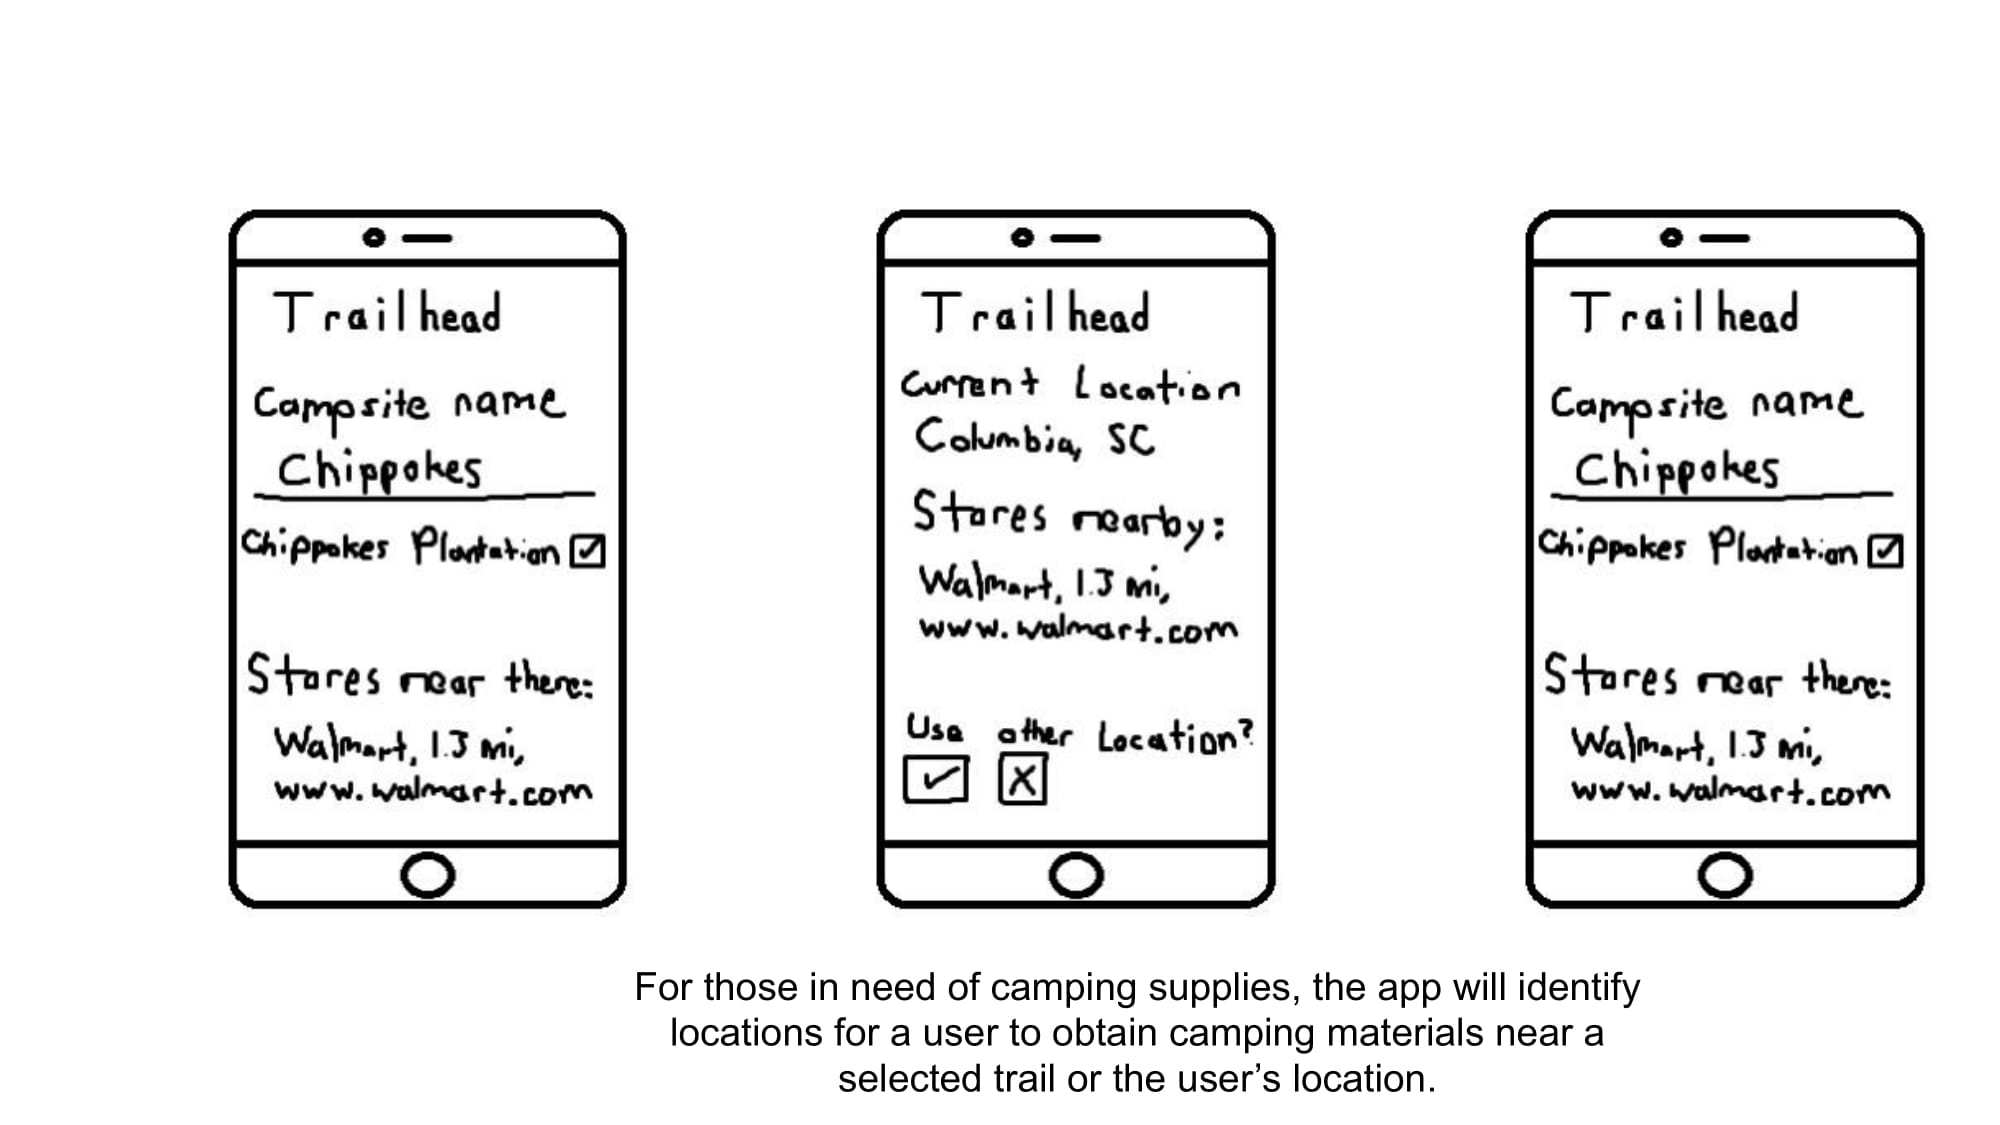 Trailhead
Campsite name
Chippokes
Chippokes Plantation
Stores near there:
Walmart, 1.3 mi,
www.walmart.com
Trailhead
Current Location
Columbia, SC
Stores nearby:
Walmart, 1.3 mi,
www.walmart.com
Use other Location?
Trailhead
Campsite name
Chippokes
Chippokes Plantation
Stores near there:
Walmart, 1.3 mi,
www.walmart.com
For those in need of camping supplies, the app will identify
locations for a user to obtain camping materials near a
selected trail or the user’s location.